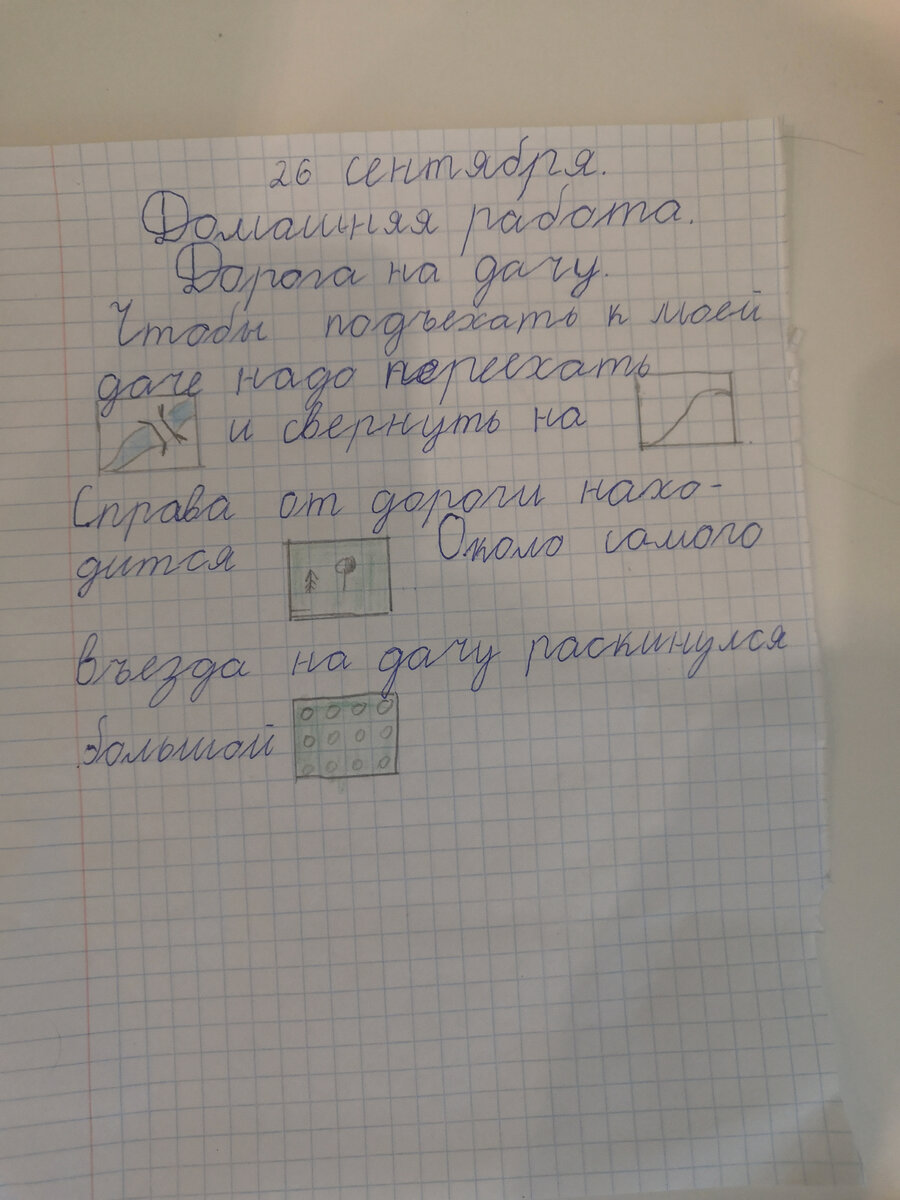 26 сентября.
Домашняя работа.
Дорога на дачу.
Чтобы подъехать к моей
даче надо переехать
и свернуть на
Справа от дороги нахо-
дится Около самого
въезда на дачу раскинулся
большой